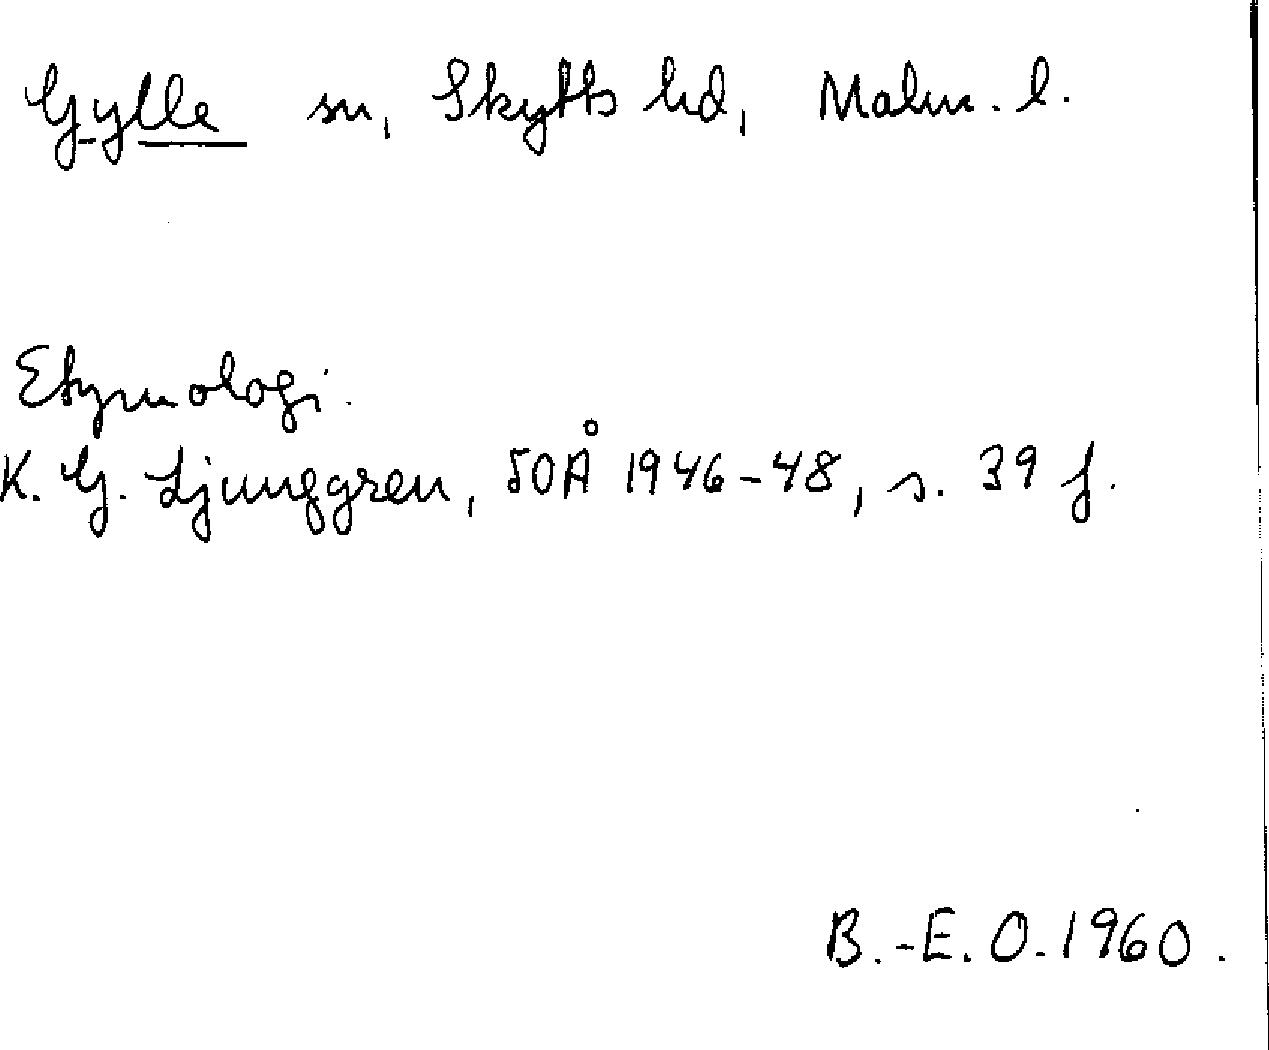 Gylle sn, Skytts hd, Malm. l.
Etymologi.
K. G. Ljunggren, SOÅ 1946-48, s. 39 f.
B.-E. O. 1960.